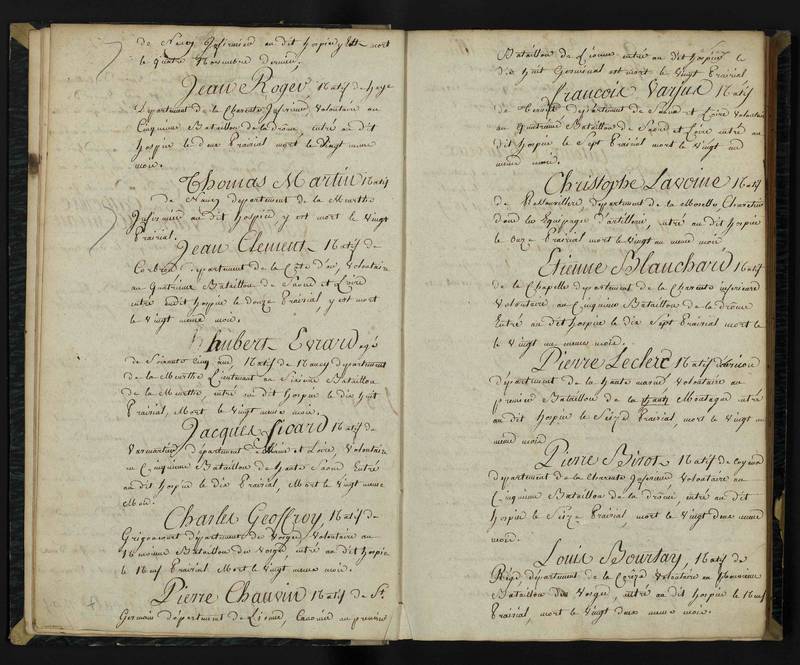 de Nancy Infirmier au dit hospice y est mort
le quatre Novembre dernier.
Jean Roger Natif de
Département de la Charente Inférieure Volontaire au
Cinquieme Bataillon de la drôme, entré au dit
hospice le douze Prairial mort le Vingt meme
mois.
Thomas Martin Natif
de Nancy département de la Meurthe
Infirmier au dit hospice, y est mort le Vingt
Prairial.
Jean Clement Natif de
département de la Côte d'or, Volontaire
au Quatrieme Bataillon de Saone et Loire
entré audit hospice le douze Prairial, y est mort
le Vingt meme mois.
hubert Evrard agé
de Soixante cinq ans, Natif de Nancy département
de la Meurthe Lieutenant au Bataillon
de la Meurthe, entré au dit hospice le dix huit
Prairial, Mort le Vingt meme mois.
Jacques Sicard Natif de
département et Loire, Volontaire
au Cinquieme Bataillon de haute Saone, Entré
au dit hospice le dix Prairial, Mort le Vingt meme
Mois.
Charles Geoffroy, Natif de
Grignoncourt département des Vosges Volontaire au
Neuvieme Bataillon des Vosges, entré au dit hospice
le Neuf Prairial Mort le Vingt meme mois.
Pierre Chauvin Natif de St.
Germain département de Lionne, Canonier au premier
Bataillon de Lionne entré au dit hospice le
dix huit Germinal est mort le Vingt Prairial
francois Varjus Natif
de département de Saone et Loire Volontaire
au Quatrieme Bataillon de Saone et Loire entré au
dit hospice le Sept Prairial mort le Vingt un
meme mois.
Christophe Lavoine Natif
de département de la Moselle Charetier
dans les Equipages d'artillerie, entré au dit hospice
le Onze Prairial mort le Vingt un meme mois
Etienne Blanchard Natif
de la Chapelle département de la Charente inferieure
Volontaire au Cinquieme Bataillon de la drôme
Entré au dit hospice le dix Sept Prairial mort le
le Vingt un meme mois.
Pierre Leclerc Natif
département de la haute marne Volontaire au
premier Bataillon de la Montagne entré
au dit hospice le Seize Prairial, mort le Vingt un
meme mois
Pierre Birot Natif de
département de la Charente Inferieure Volontaire au
Cinquieme Bataillon de la drôme, entré au dit
hospice le Seize Prairial, mort le Vingt deux meme
mois.
Louis Boursay, Natif de
département de la Corrèze Volontaire au
Bataillon des Vosges, entré au dit hospice le Neuf
Prairial, mort le Vingt deux meme mois.